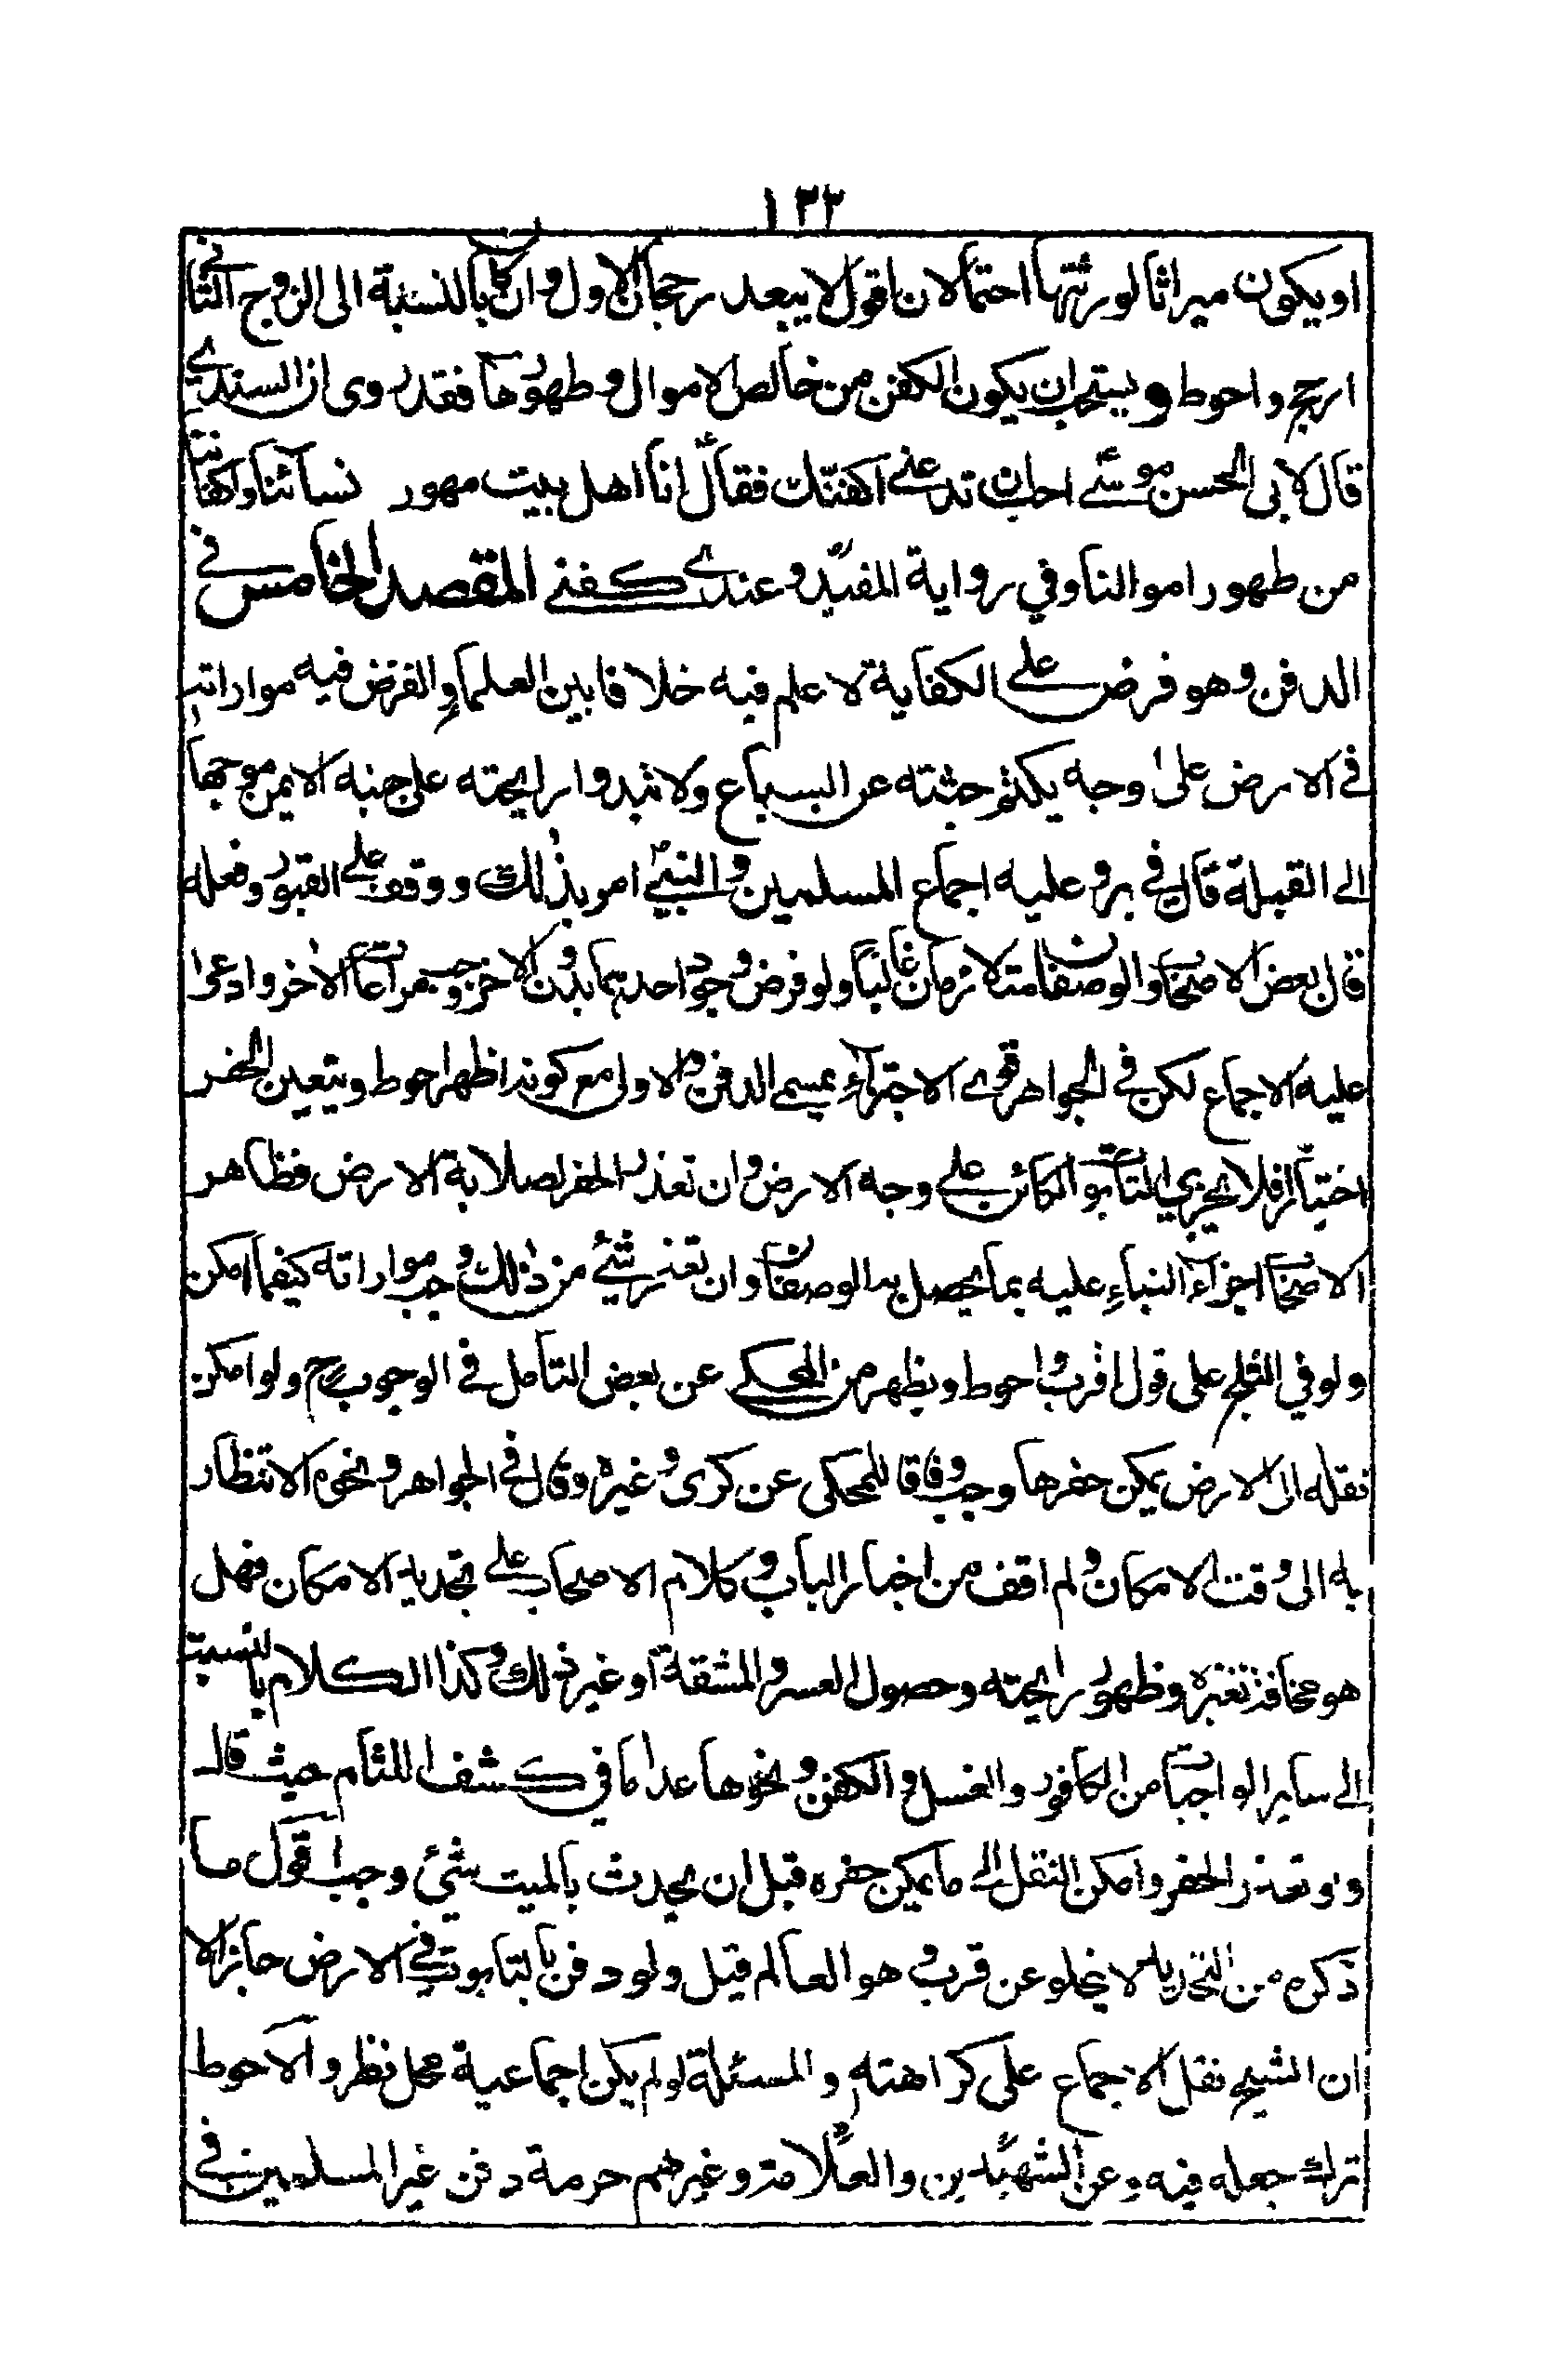 ١٣٢
او يكون ميراثا لورثتها احتمالان اقول لا يبعد رجحان الاول وان كان بالنسبة الى الزوج الثاني
ارجح واحوط ويستحب ان يكون الكفن من خالص الاموال وطهورها فقد روى ان السندي
قال لابي الحسن موسى احب ان تدعني اكفنك فقال انا اهل بيت مهور نسائنا واكفاننا
من طهور اموالنا وفي رواية المفيد وعندي كفني المقصد الخامس في
الدفن وهو فرض على الكفاية لا علم فيه خلافا بين العلماء والفرض فيه مواراته
في الارض على وجه يكتم جثته عن السباع ولا تبدوا رايحته على جنبه الايمن موجها
الى القبلة قال في بر وعليه اجماع المسلمين والنبي امر بذلك ووقف على القبور وفعله
قال بعض الاصحاب والوصفان متلازمان غالبا ولو فرض وجود احدهما بدون الاخر وجب مراعات الاخر وادعى
عليه الاجماع لكن في الجواهر قوى الاجتزاء بمسمى الدفن والاولى مع كونه اظهر احوط ويتعين الحفر
اختيارا فلا يجزي التابوت الكائن على وجه الارض وان تعذر الحفر لصلابة الارض فظاهر
الاصحاب اجزاء البناء عليه بما يحصل به الوصفان وان تعذر شئ من ذلك وجب مواراته كيفما امكن
ولو في الثلج على قول اقرب واحوط ويظهر من المحكي عن بعض التامل في الوجوب ح ولو امكن
نقله الى الارض يمكن حفرها وجب وفاقا للمحكي عن كرى وغيره وقال في الجواهر ونحوه الانتظار
به الى وقت الامكان ولم اقف من اخبار الباب وكلام الاصحاب على تحديد الامكان فهل
هو مخافة تغيره وظهور رايحته وحصول العسر والمشقة او غير ذلك وكذا الكلام بالنسبة
الى ساير الواجبات من الكافور والغسل والكفن ونحوها عدا ما في كشف اللثام حيث قال
ولو تعذر الحفر وامكن النقل الى ما يمكن حفره قبل ان يحدث بالميت شئ وجب اقول ما
ذكره من التحديد لا يخلو عن قرب وهو العالم قيل ولو دفن بالتابوت في الارض جاز الا
ان الشيخ نقل الاجماع على كراهته والمسئلة لو لم يكن اجماعية محل نظر والاحوط
ترك جعله فيه وعن الشهيدين والعلامة وغيرهم حرمة دفن غير المسلمين في